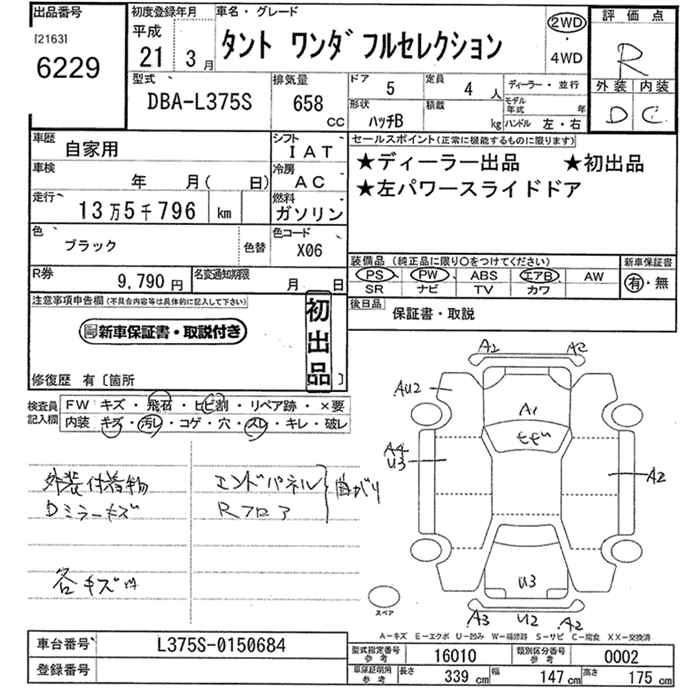 出品番号
[2163]
6229
初度登録年月
平成
21 3月
車名・グレード
タント ワンダフルセレクション
2WD
・
4WD
評価点
R
外装 内装
D C
型式
DBA-L375S
排気量
658
CC
ドア
5
定員
4人
ディーラー・並行
形状
ハッチB
積載
kg
モデル年式 年
ハンドル 左・右
車歴
自家用
シフト
IAT
車検
年 月( 日)
冷房
AC
走行
13万5千796 km
燃料
ガソリン
色
ブラック
色替
色コード
X06
セールスポイント(正常に機能するものに限ります)
★ディーラー出品 ★初出品
★左パワースライドドア
R券
9,790円
名変通知期限
月 日
装備品(純正品に限り○をつけてください)
PS PW ABS エアB AW
SR ナビ TV カワ
新車保証書
有・無
後日品
保証書・取説
注意事項申告欄(不具合内容等は具体的に記入して下さい)
新車保証書・取説付き
初出品
修復歴 有〔箇所 〕
検査員記入欄
FW キズ・飛石・ヒビ割・リペア跡・×要
内装 キズ・汚レ・コゲ・穴・スレ・キレ・破レ
外装付着物
Dミラーキズ
各キズ凹
エンドパネル
Rフロア
曲がり
A2 A2
AU2
A1
モモ゙
A4
U3
A2
U3
A3 U2 A2
スペア
A-キズ E-エクボ U-凹み W-補修跡 S-サビ C-腐食 XX-交換済
車台番号
L375S-0150684
登録番号
型式指定番号 参考
16010
類別区分番号 参考
0002
車庫証明用 参考
長さ 339cm 幅 147cm 高さ 175cm